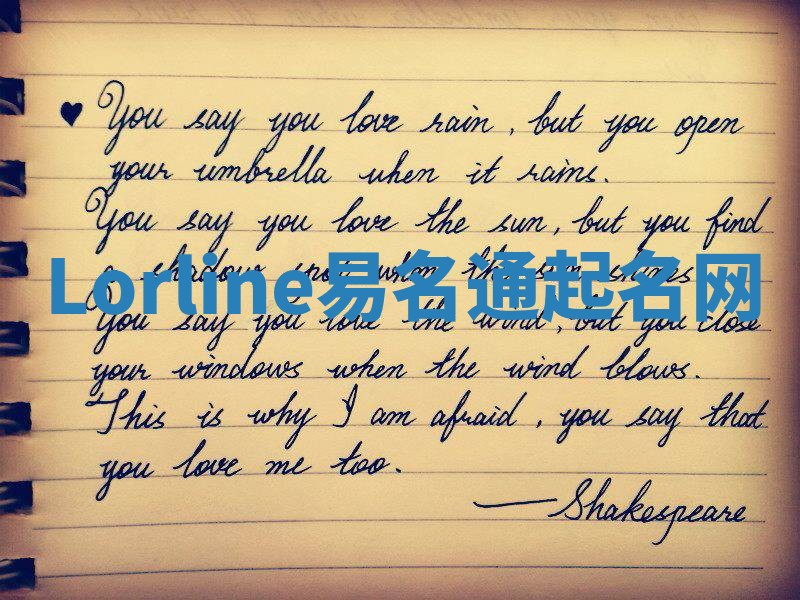 ♥ You say you love rain, but you open
your umbrella when it rains.
You say you love the sun, but you find
a shadow spot when the sun shines
Lorline易名通起名网
You say you love the wind, but you close
your windows when the wind blows.
This is why I am afraid, you say that
you love me too.
— Shakespeare